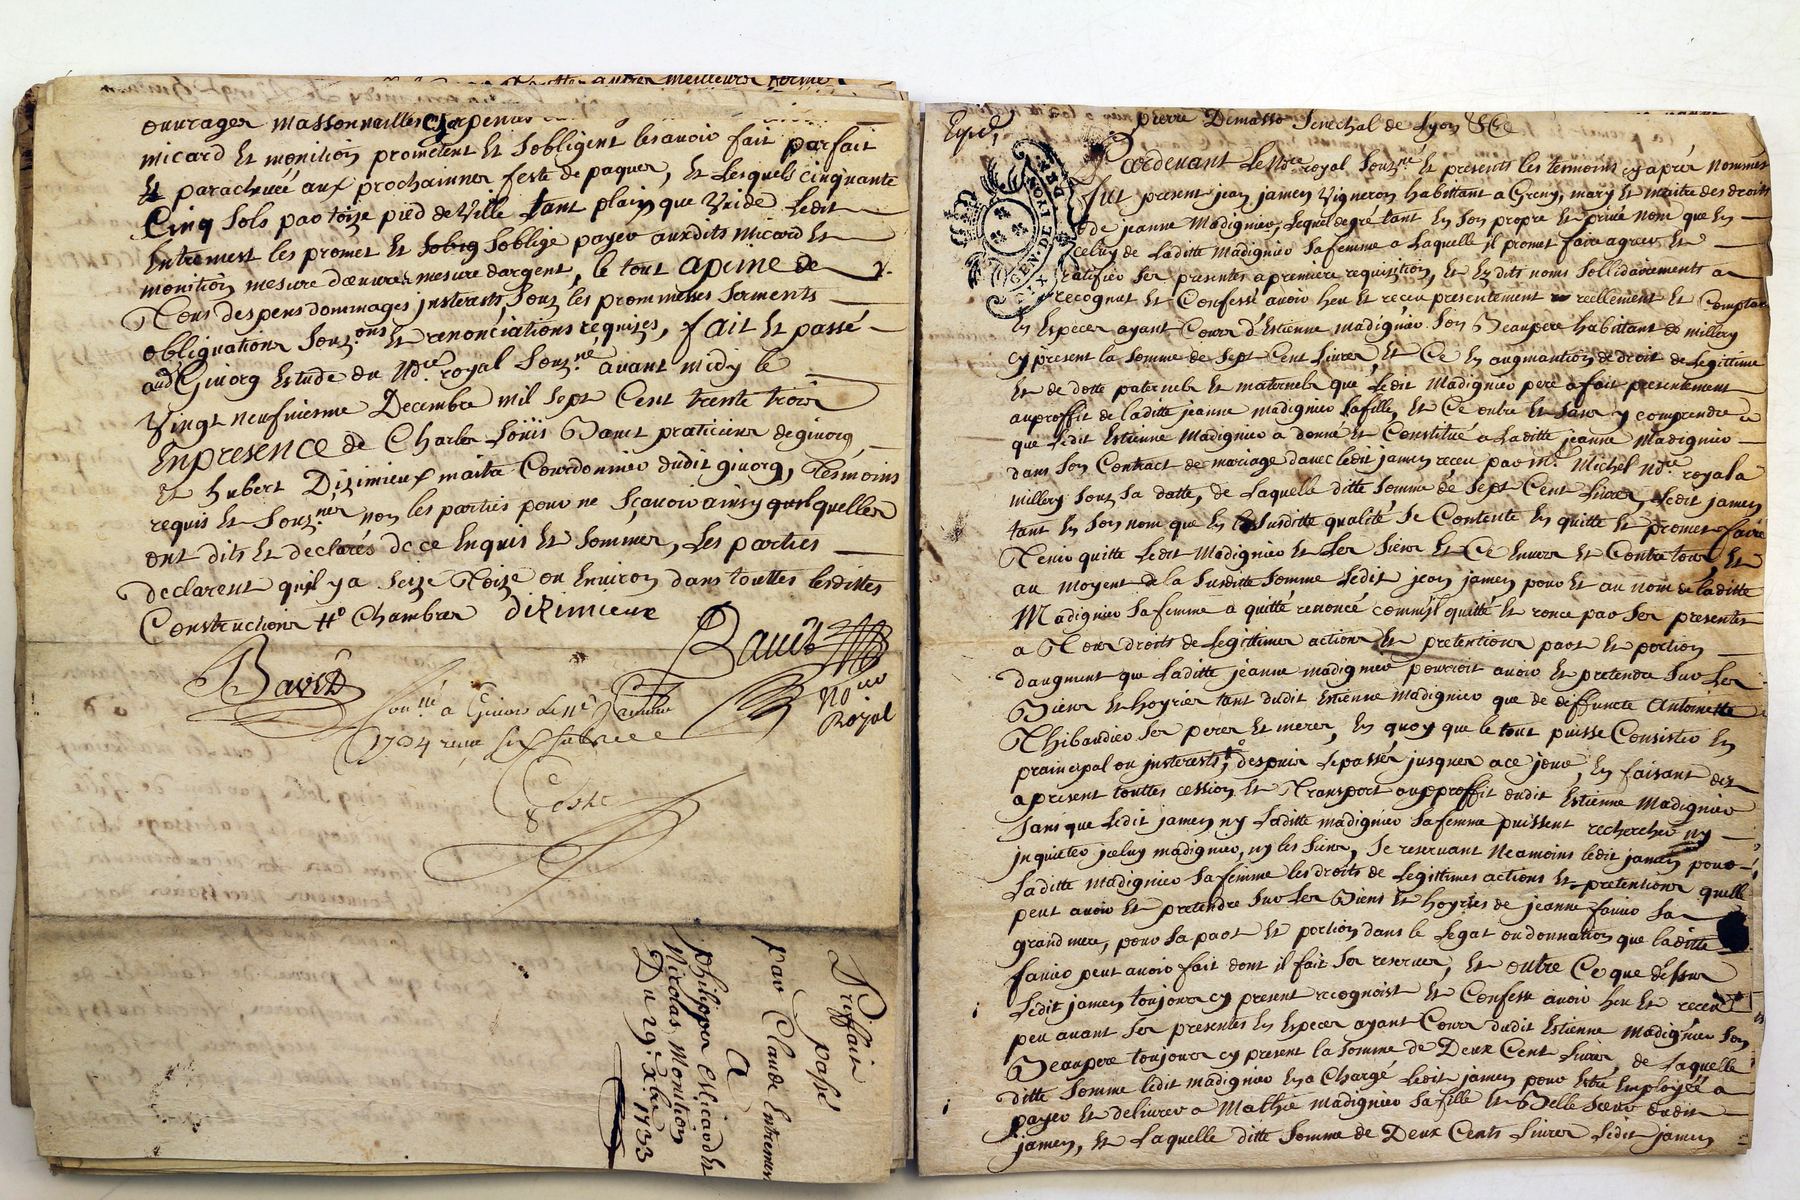 ouvrages massonnailles Charpenter
micard Et monition prometent Et Sobligent lesavoir fait parfait
Et parachevéé aux prochainnes feste de paques, Et Lesquels cinquante
Cinq Sols par toise pied de Ville tant plain que Vuide Ledit
Entremest les promet Et Soblige payer auxdits micard Et
monition mesure daeuvres mesure dargent, le tout apeine de
Tous despens dommages justerests, Souz les prommesses serments
obligations Souz.ons Et renonciations requises, fait Et passé
aud Givors Estude du Nore. royal Souz.né avant midy le
Vingt neufviesme Decembre mil Sept Cent trente trois
En presence de Charles Loüis Banet praticien de givors
Et hubert Dizimieux maitre Courdonnier dudit givors, Tesmoins
requis Et Souz.nes non les parties pour ne Sçavoir ainsy quelles
ont dits Et declarés de ce Enquis Et Sommes, Les parties
declarent quil y a Seize Toise ou Environ dans touttes lesdittes
Constructions Chambres diZimieux
a Givors
1734 reçu six
Noire
Royal
Priffait
passé
par Claude Entremest
A
Philippes Micard Et
Nicolas Monition
Du 29e. xbre 1733
Expé,
pierre Demasso Senechal de Lyon
GEN. DE LYON
Pardevant Le Nore royal Souz.né Et presents les temoins cy après nommés
fut present jean jamen Vigneron habittant a Greny, mary Et maitre des droits
de jeanne Madignier, Lequel de gré tant En Son propre Et privé nom que En
celuy de Laditte Madignier Sa femme a Laquelle il promet faire agreer Et
ratiffier Ses presentes a premiere requisition, Et Esdits noms Sollidairements a
recognut Et Confessé avoir heu Et receu presentement reellement Et Comptant
En Especes ayant Cours d'Estienne madignier Son Beaupere habittant de millery
cy present la Somme de Sept Cent Livres, Et Ce En augmantion de droit de Legittime
Et de dotte paternels Et maternels que Ledit Madignier pere a fait presentement
auproffit de laditte jeanne madignier Safille, Et Ce outre Et Sans y comprendre ce
que Ledit Estienne Madignier a donné Et Constitué a Laditte jeanne Madignier
dans Son Contract de mariage d'avec ledit jamen receu par me. Michel Nore royal a
millery Souz Sa datte, de Laquelle ditte Somme de Sept Cent Livres, Ledit jamen
tant En Son nom que En la Susditte qualité Se Contente En quitte Et promet faire
Tenir quitte Ledit Madignier Et Les Siens Et Ce Envers Et Contre tous, Et
au moyent de la Susditte Somme Ledit jean jamen pour Et au nom de laditte
Madignier Sa femme a quitté renoncé comm'il quitte Et ronce par Ses presentes
a Tous droits de Legittimes actions Et pretentions part Et portion
daugment que Laditte jeanne madignier pourroit avoir Et pretendre Sur Les
Biens Et hoyries tant dudit Estienne Madignier que de deffuncte Antoinette
Thibaudier Ses peres Et meres, En quoy que le tout puisse Consister En
prainsipal ou justerests, despuis Le passés jusques a ce jour, En faisant des
apresent touttes cession Et Transport auproffit dudit Estienne Madignier
Sans que Ledit jamen ny Laditte madignier Sa femme puissent rechercher ny
jnquieter jceluy madignier, ny les Siens, Se reservant Neamoins ledit jamen pour
Laditte Madignier Sa femme les droits de Legittimes actions Et pretentions quelle
peut avoir Et pretendre Sur Les Biens Et hoyries de jeanne favier Sa
grand mere, pour Sa part Et portion dans le Legat ou donnation que laditte
favier peut avoir fait dont il fait Ses reserves, Et outre Ce que dessus
Ledit jamen toujours cy present recognoist Et Confesse avoir heu Et receu
peu avant Ses presentes En Especes ayant Cours dudit Estienne Madignier Son
Beaupere toujours cy present la Somme de Deux Cent Livres, de Laquelle
ditte Somme ledit madignier En a Chargé Ledit jamen pour Estre Employéé a
payer Et delivrer a Mathie Madignier Sa fille Et Belle Soeur dudit
jamen, Et Laquelle ditte Somme de Deux Cents Livres Ledit jamen